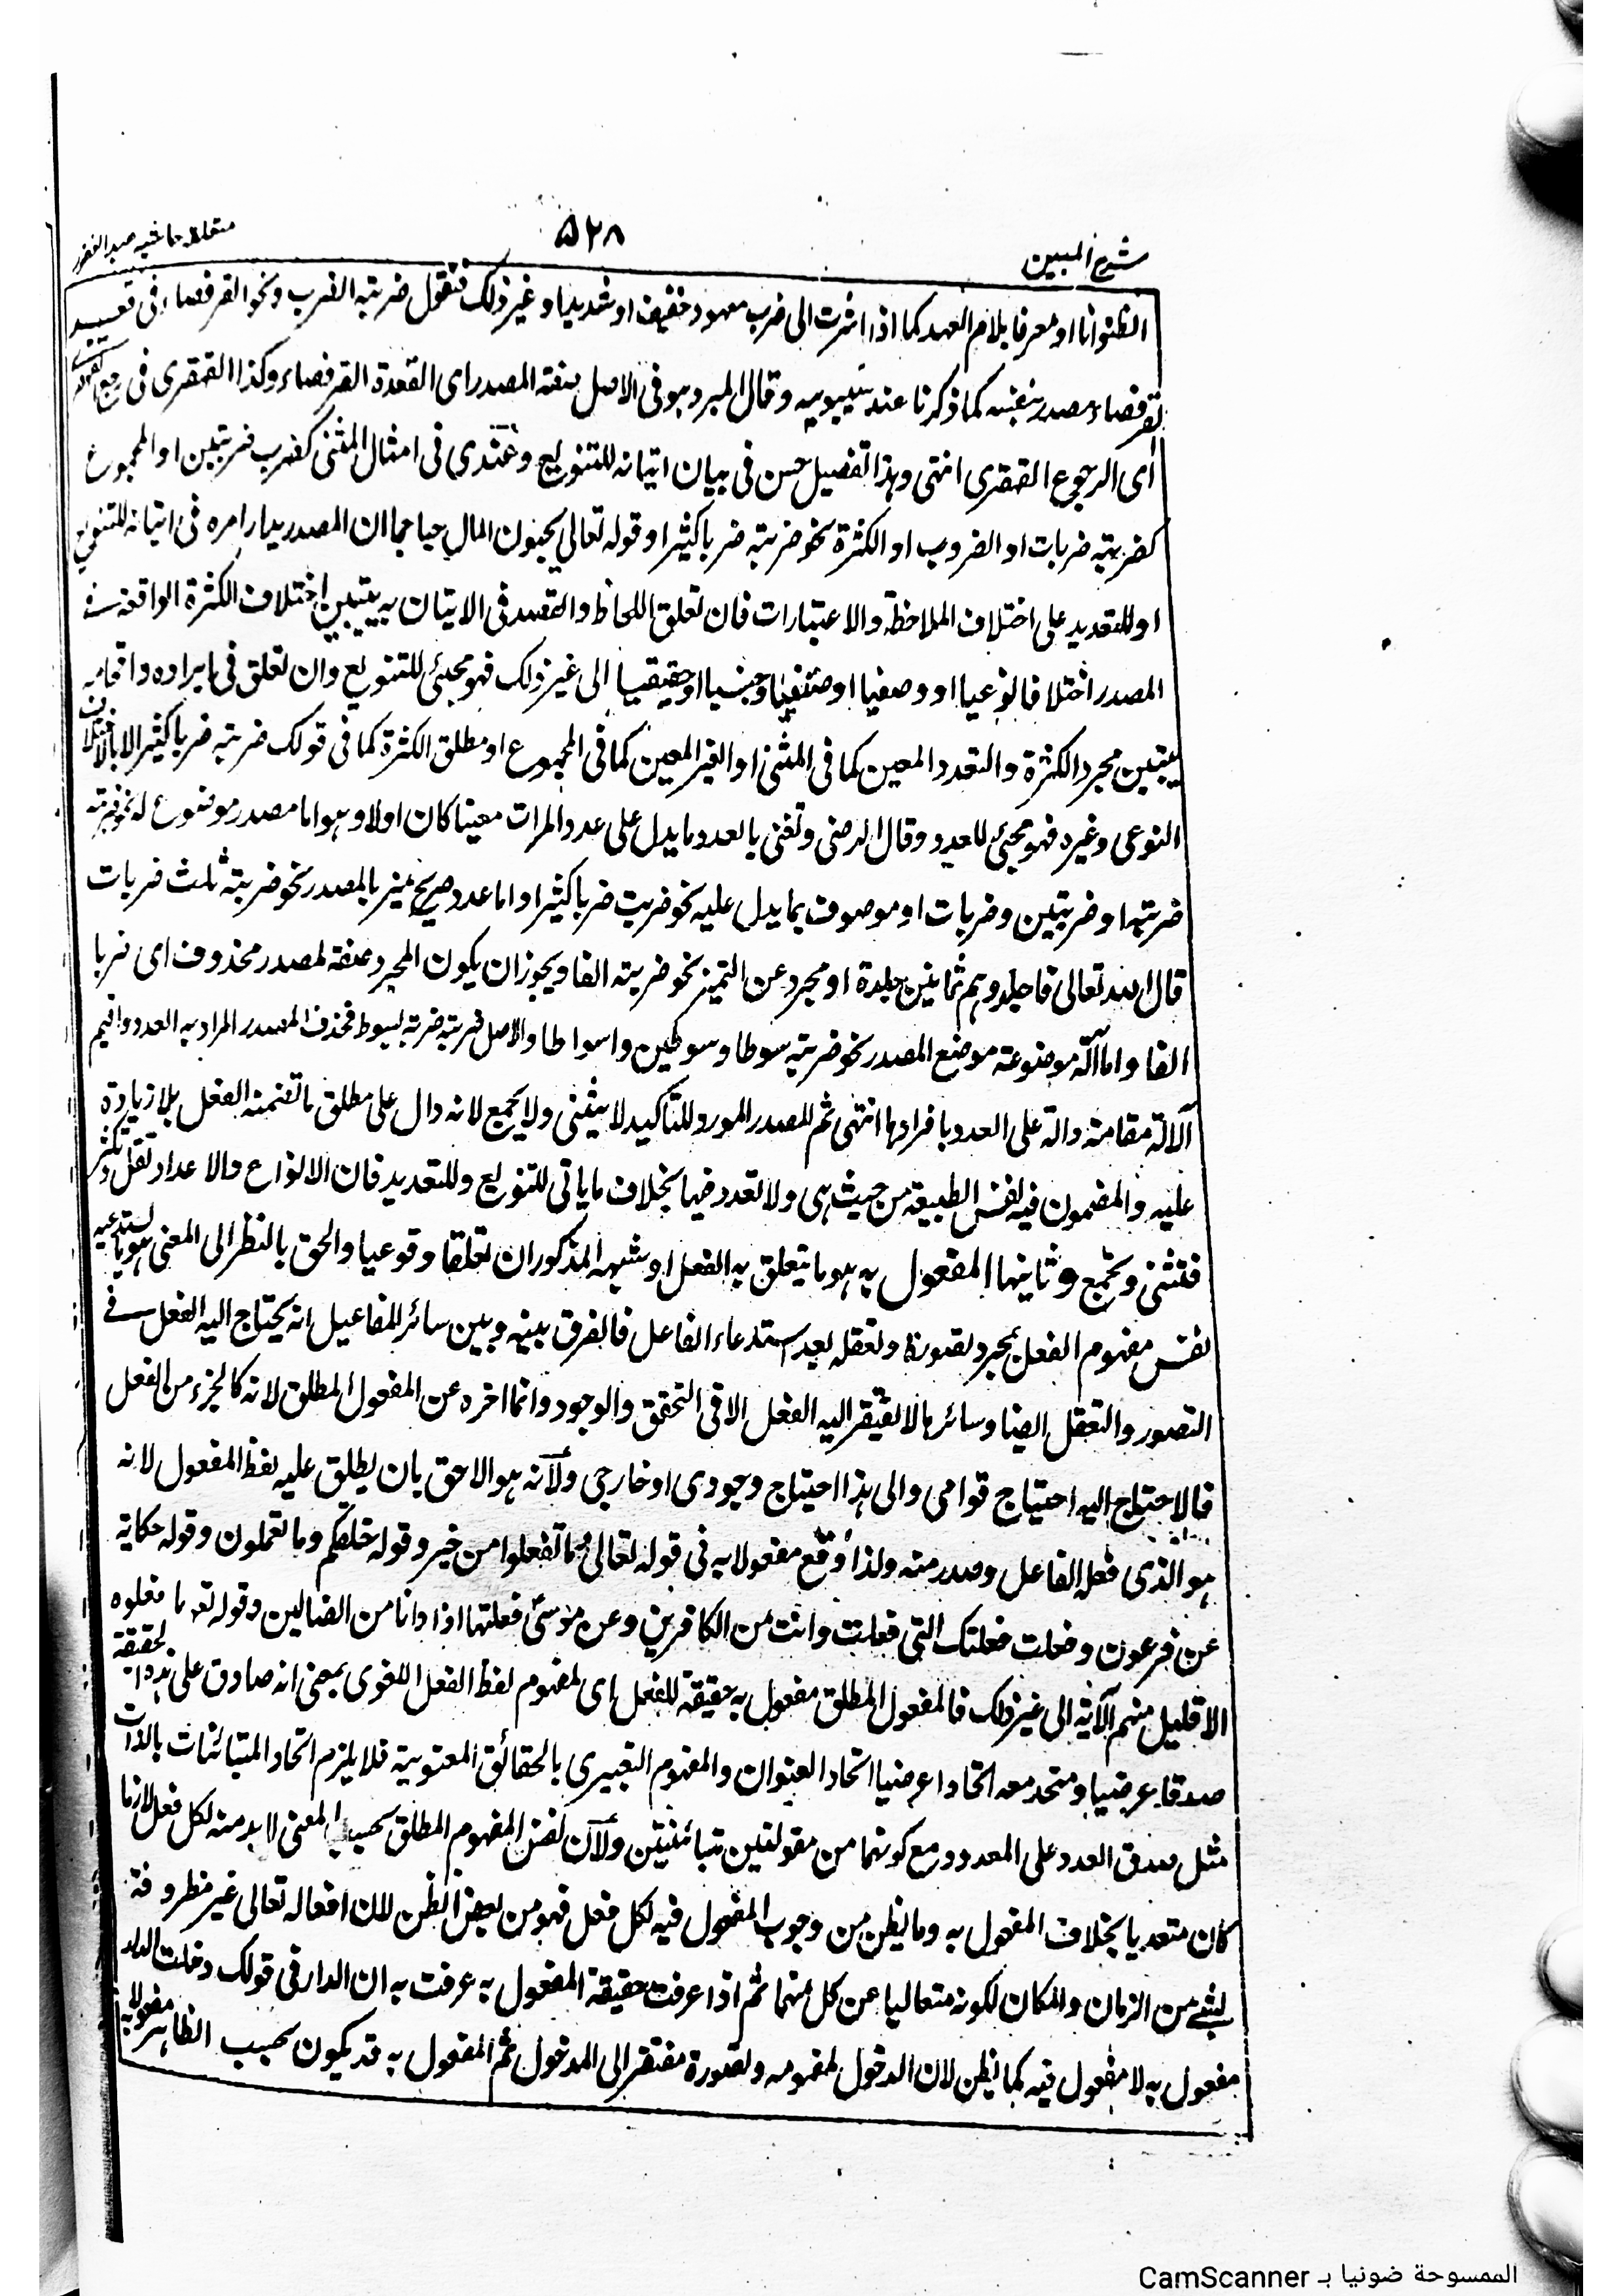 شرح المبين
٥٢٨
متعلقه حاشیه عبد الغفور
الظنونا او معرفا بلام العهد كما اذا اشرت الى ضرب معهود خفيف او شديد او غير ذلك فتقول ضربته الضرب ونحو القرفصاء فى قعد
القرفصاء مصدر بنفسه كما ذكرنا عند سيبويه وقال المبرد هو فى الاصل صفة المصدر اى القعدة القرفصاء وكذا القهقرى فى رجع القهقرى
اى الرجوع القهقرى انتهى وهذا تفصيل حسن فى بيان اتيانه للتنويع وعندى فى امثال المثنى كضرب ضربتين او المجموع
كضربته ضربات او الضروب او الكثرة نحو ضربته ضربا كثيرا وقوله تعالى يحبون المال حبا جما ان المصدر يدار امره فى اتيانه للتنويع
او للتعديد على اختلاف الملاحظة والاعتبارات فان تعلق اللحاظ والقصد فى الاتيان به بتبيين اختلاف الكثرة الواقعة فى
المصدر اختلافا نوعيا او وصفيا او صنفيا او جنسيا او حقيقيا الى غير ذلك فهو مجئ للتنويع وان تعلق فى ايراده واقحامه
بتبيين مجرد الكثرة والتعدد المعين كما فى المثنى او الغير المعين كما فى المجموع او مطلق الكثرة كما فى قولك ضربته ضربا كثيرا لا بالاختلاف
النوعى وغيره فهو مجئ للعدد وقال الرضى ونعنى بالعدد ما يدل على عدد المرات معينا كان اولا وهو اما مصدر موضوع له نحو ضربته
ضربة او ضربتين وضربات او موصوف بما يدل عليه نحو ضربت ضربا كثيرا او اما عدد صريح مميز بالمصدر نحو ضربته ثلث ضربات
قال الله تعالى فاجلدوهم ثمانين جلدة او مجرد عن التميز نحو ضربته الفا ويجوز ان يكون المجرد صفة لمصدر محذوف اى ضربا
الفا واما آلة موضوعة موضع المصدر نحو ضربته سوطا وسوطين واسواطا والاصل ضربته ضربة بسوط فحذف المصدر المراد به العدد واقيم
الآلة مقامه دالة على العدد بافرادها انتهى ثم للمصدر المورد للتاكيد لا يثنى ولا يجمع لانه دال على مطلق ما تضمنه الفعل بلا زيادة
عليه والمضمون فيه نفس الطبيعة من حيث هى ولا تعدد فيها بخلاف ما ياتى للتنويع وللتعديد فان الانواع والاعداد تقل وتكثر
فتثنى وتجمع وثانيها المفعول به هو ما يتعلق به الفعل او شبهه المذكوران تعلقا وقوعيا والحق بالنظر الى المعنى هو ما يستدعيه
نفس مفهوم الفعل بمجرد تصوره وتعقله بعد استدعاء الفاعل فالفرق بينه وبين سائر المفاعيل انه يحتاج اليه الفعل فى
التصور والتعقل ايضا وسائرها لا يفتقر اليه الفعل الا فى التحقق والوجود وانما اخره عن المفعول المطلق لانه كالجزء من الفعل
فالاحتياج اليه احتياج قوامى والى هذا احتياج وجودى او خارجى ولانه هو الاحق بان يطلق عليه لفظ المفعول لانه
هو الذى فعل الفاعل وصدر منه ولذا وقع مفعولا به فى قوله تعالى وما تفعلوا من خير وقوله خلقكم وما تعملون وقوله حكاية
عن فرعون وفعلت فعلتك التى فعلت وانت من الكافرين وعن موسى فعلتها اذا وانا من الضالين وقوله تعه ما فعلوه
الا قليل منهم الآية الى غير ذلك فالمفعول المطلق مفعول به حقيقة للفعل اى لمفهوم لفظ الفعل اللغوى بمعنى انه صادق على هذه الحقيقة
صدقا عرضيا ومتحد معه اتحادا عرضيا اتحاد العنوان والمفهوم التعبيرى بالحقائق المعنونة فلا يلزم اتحاد المتبائنات بالذات
مثل صدق العدد على المعدود مع كونهما من مقولتين متبائنتين ولان نفس المفهوم المطلق بحسب المعنى لا بد منه لكل فعل لازما
كان متعديا بخلاف المفعول به وما يظن من وجوب المفعول فيه لكل فعل فهو من بعض الظن لان افعاله تعالى غير مظروفة
لشئ من الزمان والمكان لكونه متعاليا عن كل منهما ثم اذا عرفت حقيقة المفعول به عرفت به ان الدار فى قولك دخلت الدار
مفعول به لا مفعول فيه كما يظن لان الدخول لمفهومه وتصوره مفتقر الى المدخول ثم المفعول به قد يكون بحسب الظاهر مفعولا به
الممسوحة ضوئيا بـ CamScanner